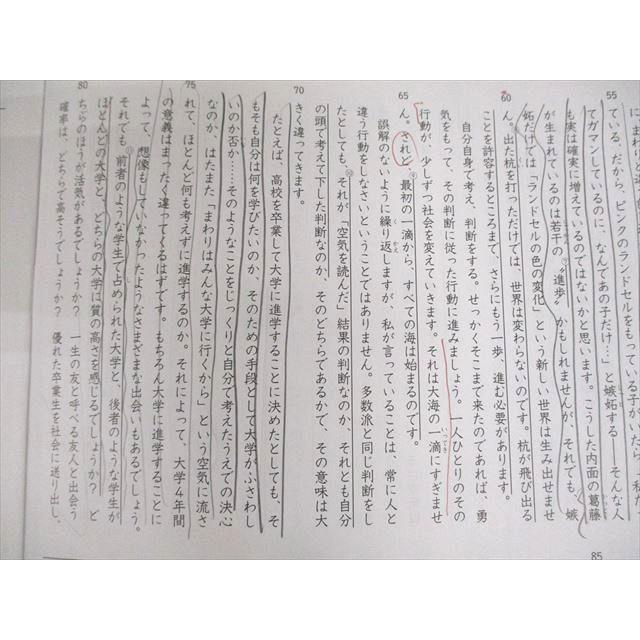 55
ている、だから、ピンクのランドセルをもっている子がいたら、私だっ
てガマンしているのに、なんであの子だけ…」と嫉妬する――そんな人
も実は確実に増えているのではないかと思います。こうした内面の葛藤
が生まれているのは若干の〝進歩〟かもしれませんが、それでも、嫉
妬だけでは「ランドセルの色の変化」という新しい世界は生み出せませ
60
ん。出た杭を打っただけでは、世界は変わらないのです。杭が飛び出る
ことを許容するところまで、さらにもう一歩、進む必要があります。
自分自身で考え、判断をする。せっかくそこまで来たのであれば、勇
気をもって、その判断に従った行動に進みましょう。一人ひとりのその
行動が、少しずつ社会を変えていきます。それは大海の一滴にすぎませ
いってき
65
ん。されど④最初の一滴から、すべての海は始まるのです。
誤解のないように繰り返しますが、私が言っていることは、常に人と
かえ
違う行動をしなさいということではありません。多数派と同じ判断をし
たとしても、それが「空気を読んだ」結果の判断なのか、それとも自分
の頭で考えて下した判断なのか、そのどちらであるかで、その意味は大
70
きく違ってきます。
たとえば、高校を卒業して大学に進学することに決めたとしても、そ
もそも自分は何を学びたいのか、そのための手段として大学がふさわし
いのか否か……そのようなことをじっくりと自分で考えたうえでの決心
なのか、はたまた「まわりはみんな大学に行くから」という空気に流さ
75
れて、ほとんど何も考えずに進学するのか。それによって、大学4年間
の意義はまったく違ってくるはずです。もちろん大学に進学することに
よって、想像もしていなかったようなさまざまな出会いもあるでしょう。
それでも、前者のような学生で占められた大学と、後者のような学生が
ほとんどの大学と、どちらの大学に質の高さを感じるでしょうか？　ど
80
ちらのほうが活気があるでしょうか？　一生の友と呼べる友人と出会う
確率は、どちらで高そうでしょうか？　優れた卒業生を社会に送り出し、
85